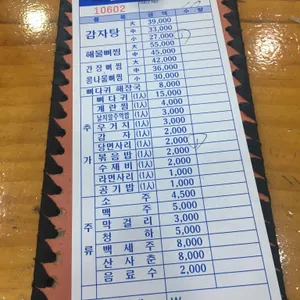 10602
품 목 금 액 수 량
감자탕 大 39,000
中 33,000
小 27,000
해물뼈찜 大 55,000
中 45,000
간장뼈찜 大 42,000
콩나물뼈찜 中 36,000
小 30,000
뼈다귀 해장국 8,000
추가 뼈다귀 (1人) 15,000
계란찜 4,000
날치알주먹밥 3,000
우거지 (1人) 3,000
감자 (1人) 2,000
당면사리 (1人) 2,000
볶음밥 (1人) 2,000
수제비 (1人) 2,000
라면사리 (1人) 1,000
공기밥 (1人) 1,000
주류 소주 4,500
맥주 5,000
막걸리 3,000
청하 5,000
백세주 8,000
산사춘 8,000
음료수 2,000